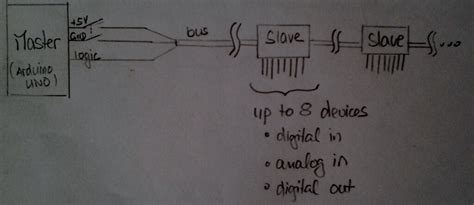 Master
(Arduino
UNO)
+5V
GND
logic
bus
Slave
Slave
...
up to 8 devices
• digital in
• analog in
• digital out